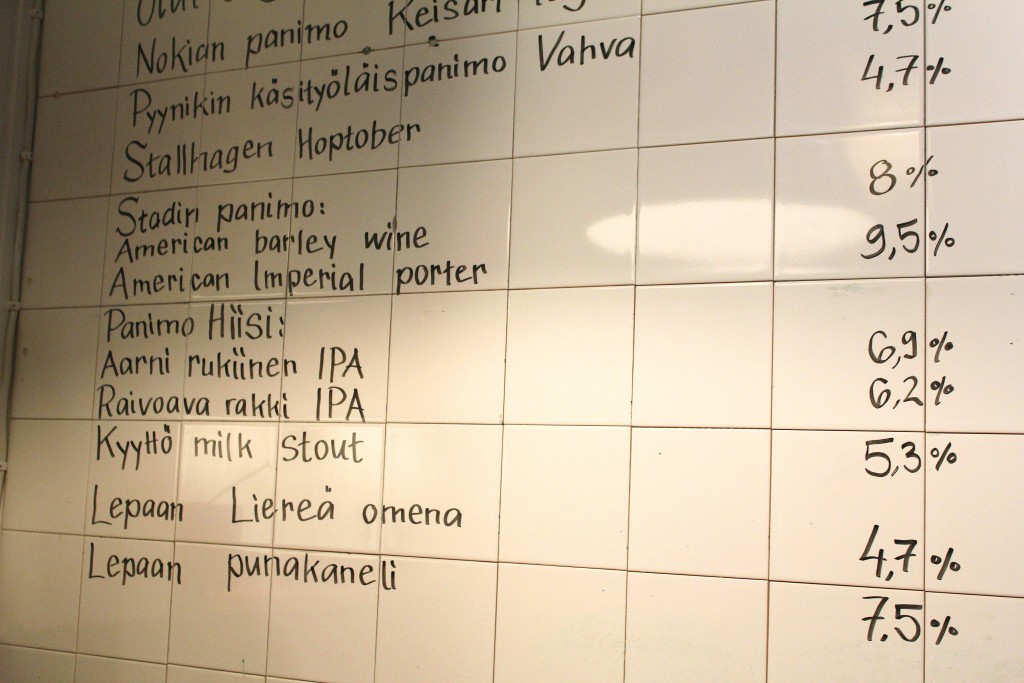 Nokian panimo Keisari 7,5%
Pyynikin käsityöläispanimo Vahva 4,7%
Stallhagen Hoptober
Stadin panimo: 8%
American barley wine 9,5%
American Imperial porter
Panimo Hiisi:
Aarni rukiinen IPA 6,9%
Raivoava rakki IPA 6,2%
Kyyttö milk stout 5,3%
Lepaan Liereä omena
Lepaan punakaneli 4,7%
7.5%